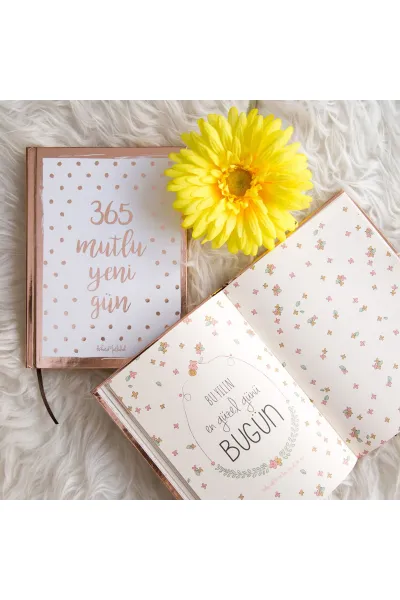 365
mutlu
yeni
gün
BU YILIN
en güzel günü
BUGÜN